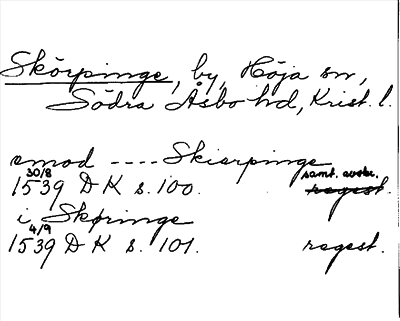 Skörpinge, by, Höja sn,
Södra Åsbo hd, Krist. l.
emod ---- Skiarpinge
30/8 samt. avskr.
1539 DK s. 100. regest.
i Skøringe
4/9
1539 DK s. 101. regest.